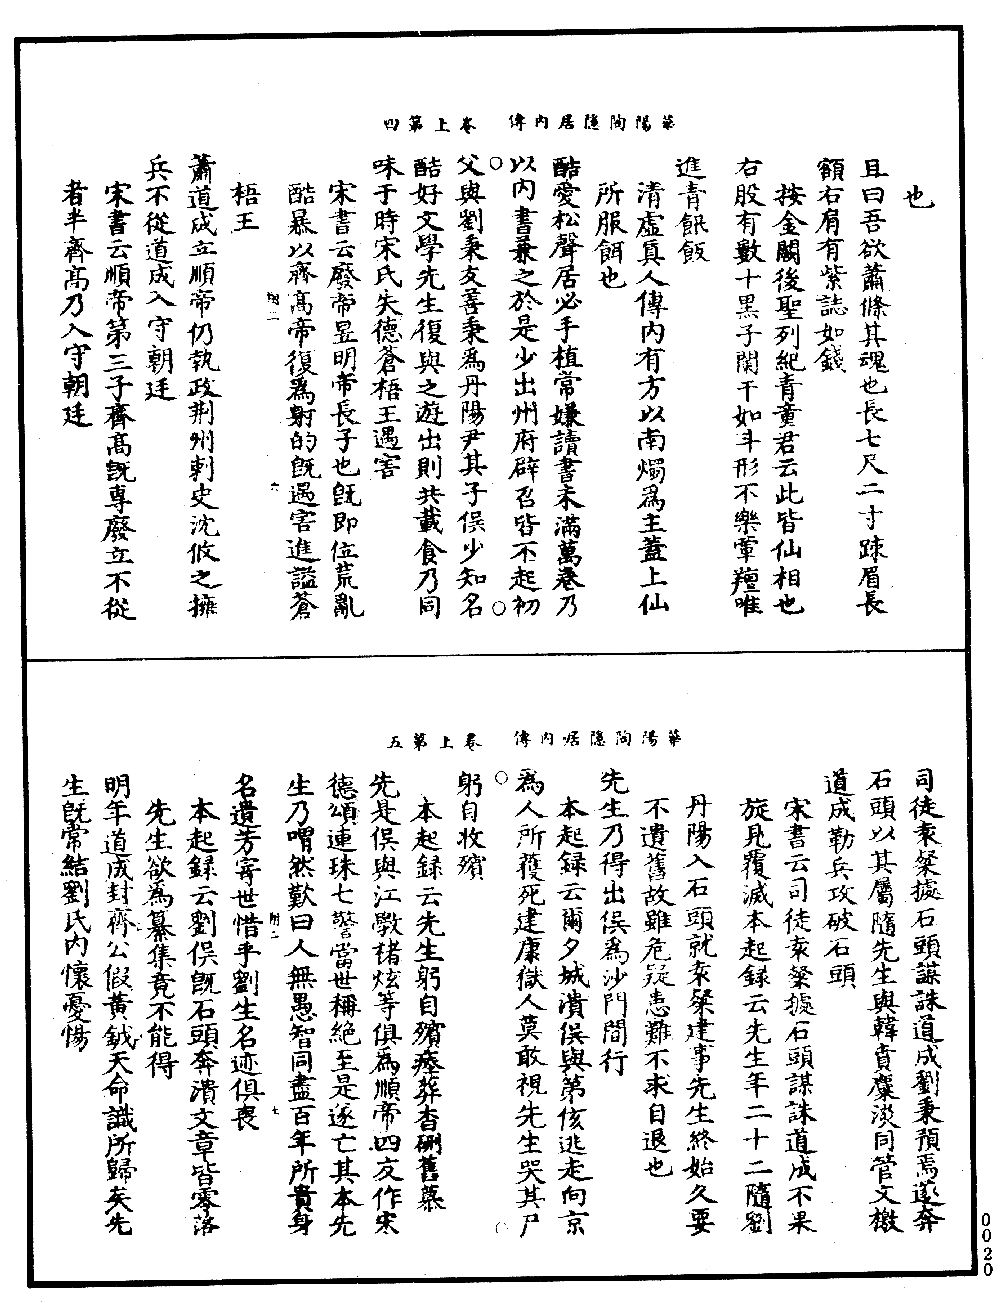 華陽陶隱居內傳　卷上第四
也
且曰吾欲蕭條其魂也長七尺二寸踈眉長
額右肩有紫誌如錢
按金闕後聖列紀青童君云此皆仙相也
右股有數十黑子闌干如斗形不樂葷羶唯
進青飢飯
清虛真人傳內有方以南燭為主蓋上仙
所服餌也
酷愛松聲居必手植常嫌讀書未滿萬卷乃
以內書兼之於是少出州府辟召皆不起初
父與劉秉友善秉為丹陽尹其子俁少知名
酷好文學先生復與之遊出則共載食乃同
味于時宋氏失德蒼梧王遇害
宋書云廢帝昱明帝長子也既即位荒亂
酷暴以齊高帝復為射的既遇害進謚蒼
梧王
蕭道成立順帝仍執政荆州刺史沈攸之擁
兵不從道成入守朝廷
宋書云順帝第三子齊高既專廢立不從
者半齊高乃入守朝廷
華陽陶隱居內傳　卷上第五
司徒袁粲據石頭謀誅道成劉秉預焉遂奔
石頭以其屬隨先生與韓賁麋淡同管文檄
道成勒兵攻破石頭
宋書云司徒袁粲據石頭謀誅道成不果
旋見覆滅本起録云先生年二十二隨劉
丹陽入石頭就袁粲建事先生終始久要
不遺舊故雖危疑患難不求自退也
先生乃得出俁為沙門間行
本起録云爾夕城潰俁與弟侅逃走向京
為人所獲死建康獄人莫敢視先生哭其尸
躬自收殯
本起録云先生躬自殯瘞葬杳硎舊墓
先是俁與江斅褚炫等俱為順帝四友作宋
德頌連珠七警當世稱絕至是遂亡其本先
生乃喟然歎曰人無愚智同盡百年所貴身
名遺芳寄世惜乎劉生名迹俱喪
本起録云劉俁既石頭奔潰文章皆零落
先生欲為纂集竟不能得
明年道成封齊公假黃鉞天命識所歸矣先
生既常結劉氏內懷憂惕
0020